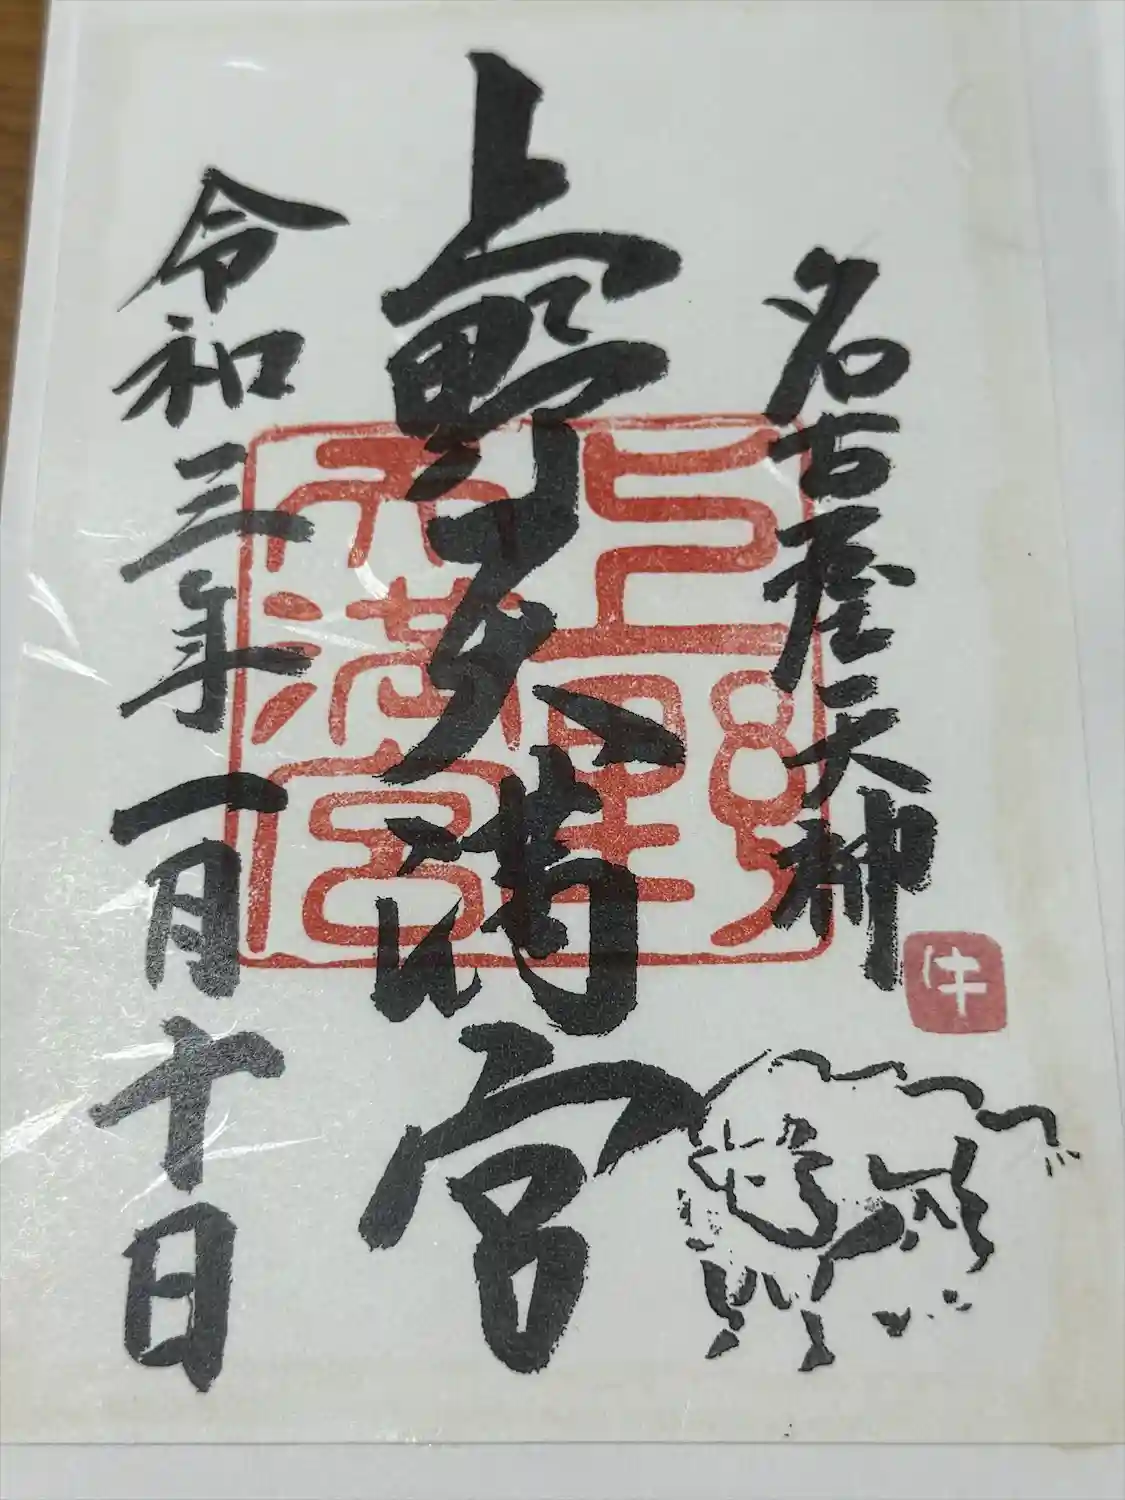 名古屋天神
牛
上野天満宮
上野天満宮
令和三年一月十日